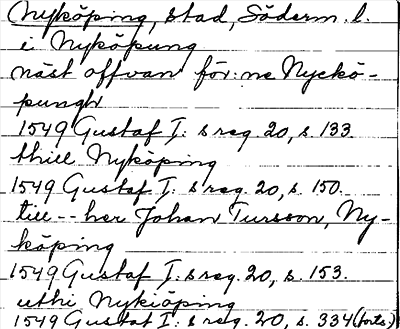 Nyköping, stad, Söderm. l.
i Nyköpung
näst offvan för:ne Nyckö-
pungh
1549 Gustaf I:s reg. 20, s. 133.
thiill Nyköping
1549 Gustaf I:s reg. 20, s. 150.
till -- her Johan Tursson, Ny-
köping
1549 Gustaf I:s reg. 20, s. 153.
uthi Nykiöping
1549 Gustaf I:s reg. 20, s. 334 (forts.)